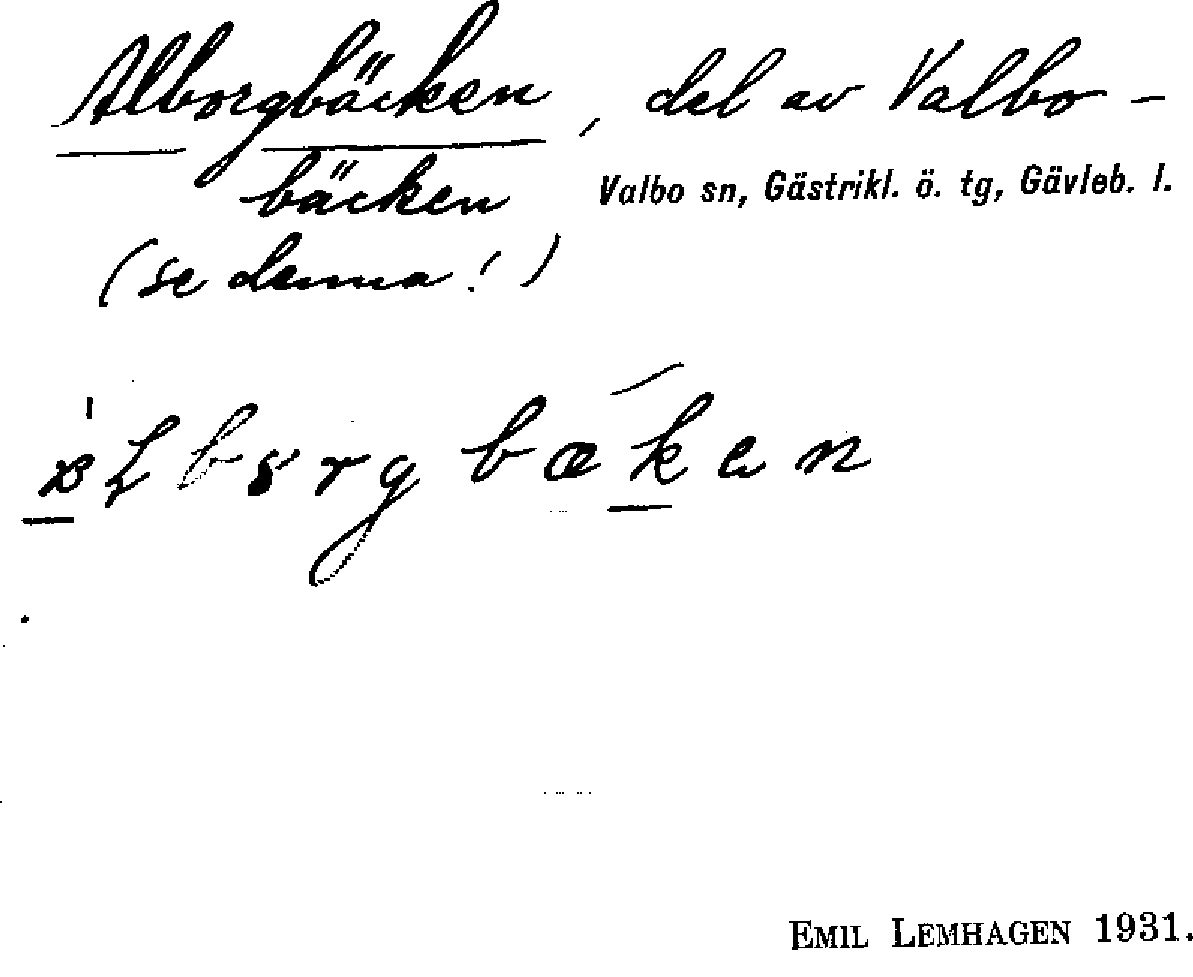 Alborgbäcken, del av Valbo-
bäcken
Valbo sn, Gästrikl. ö. tg, Gävleb. l.
(se denna!)
EMIL LEMHAGEN 1931.